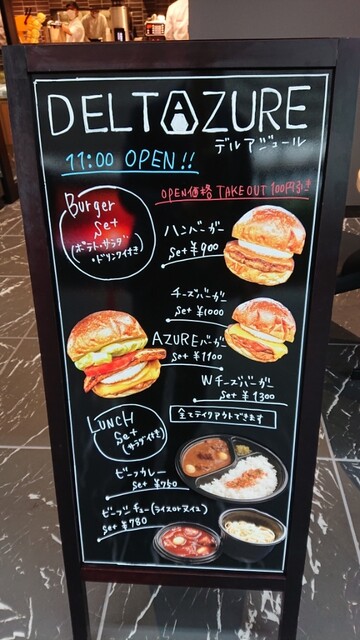 DELTAZURE
デルアジュール
11:00 OPEN!!
OPEN価格 TAKEOUT 100円引き
Burger
Set
(ポテト・サラダ
・ドリンク付き)
ハンバーガー
Set ¥900
チーズバーガー
Set ¥1000
AZUREバーガー
Set ¥1100
Wチーズバーガー
Set ¥1300
LUNCH
Set
(サラダ付き)
全てテイクアウトできます
ビーフカレー
Set ¥750
ビーフシチュー(ライスorヌイユ)
Set ¥780